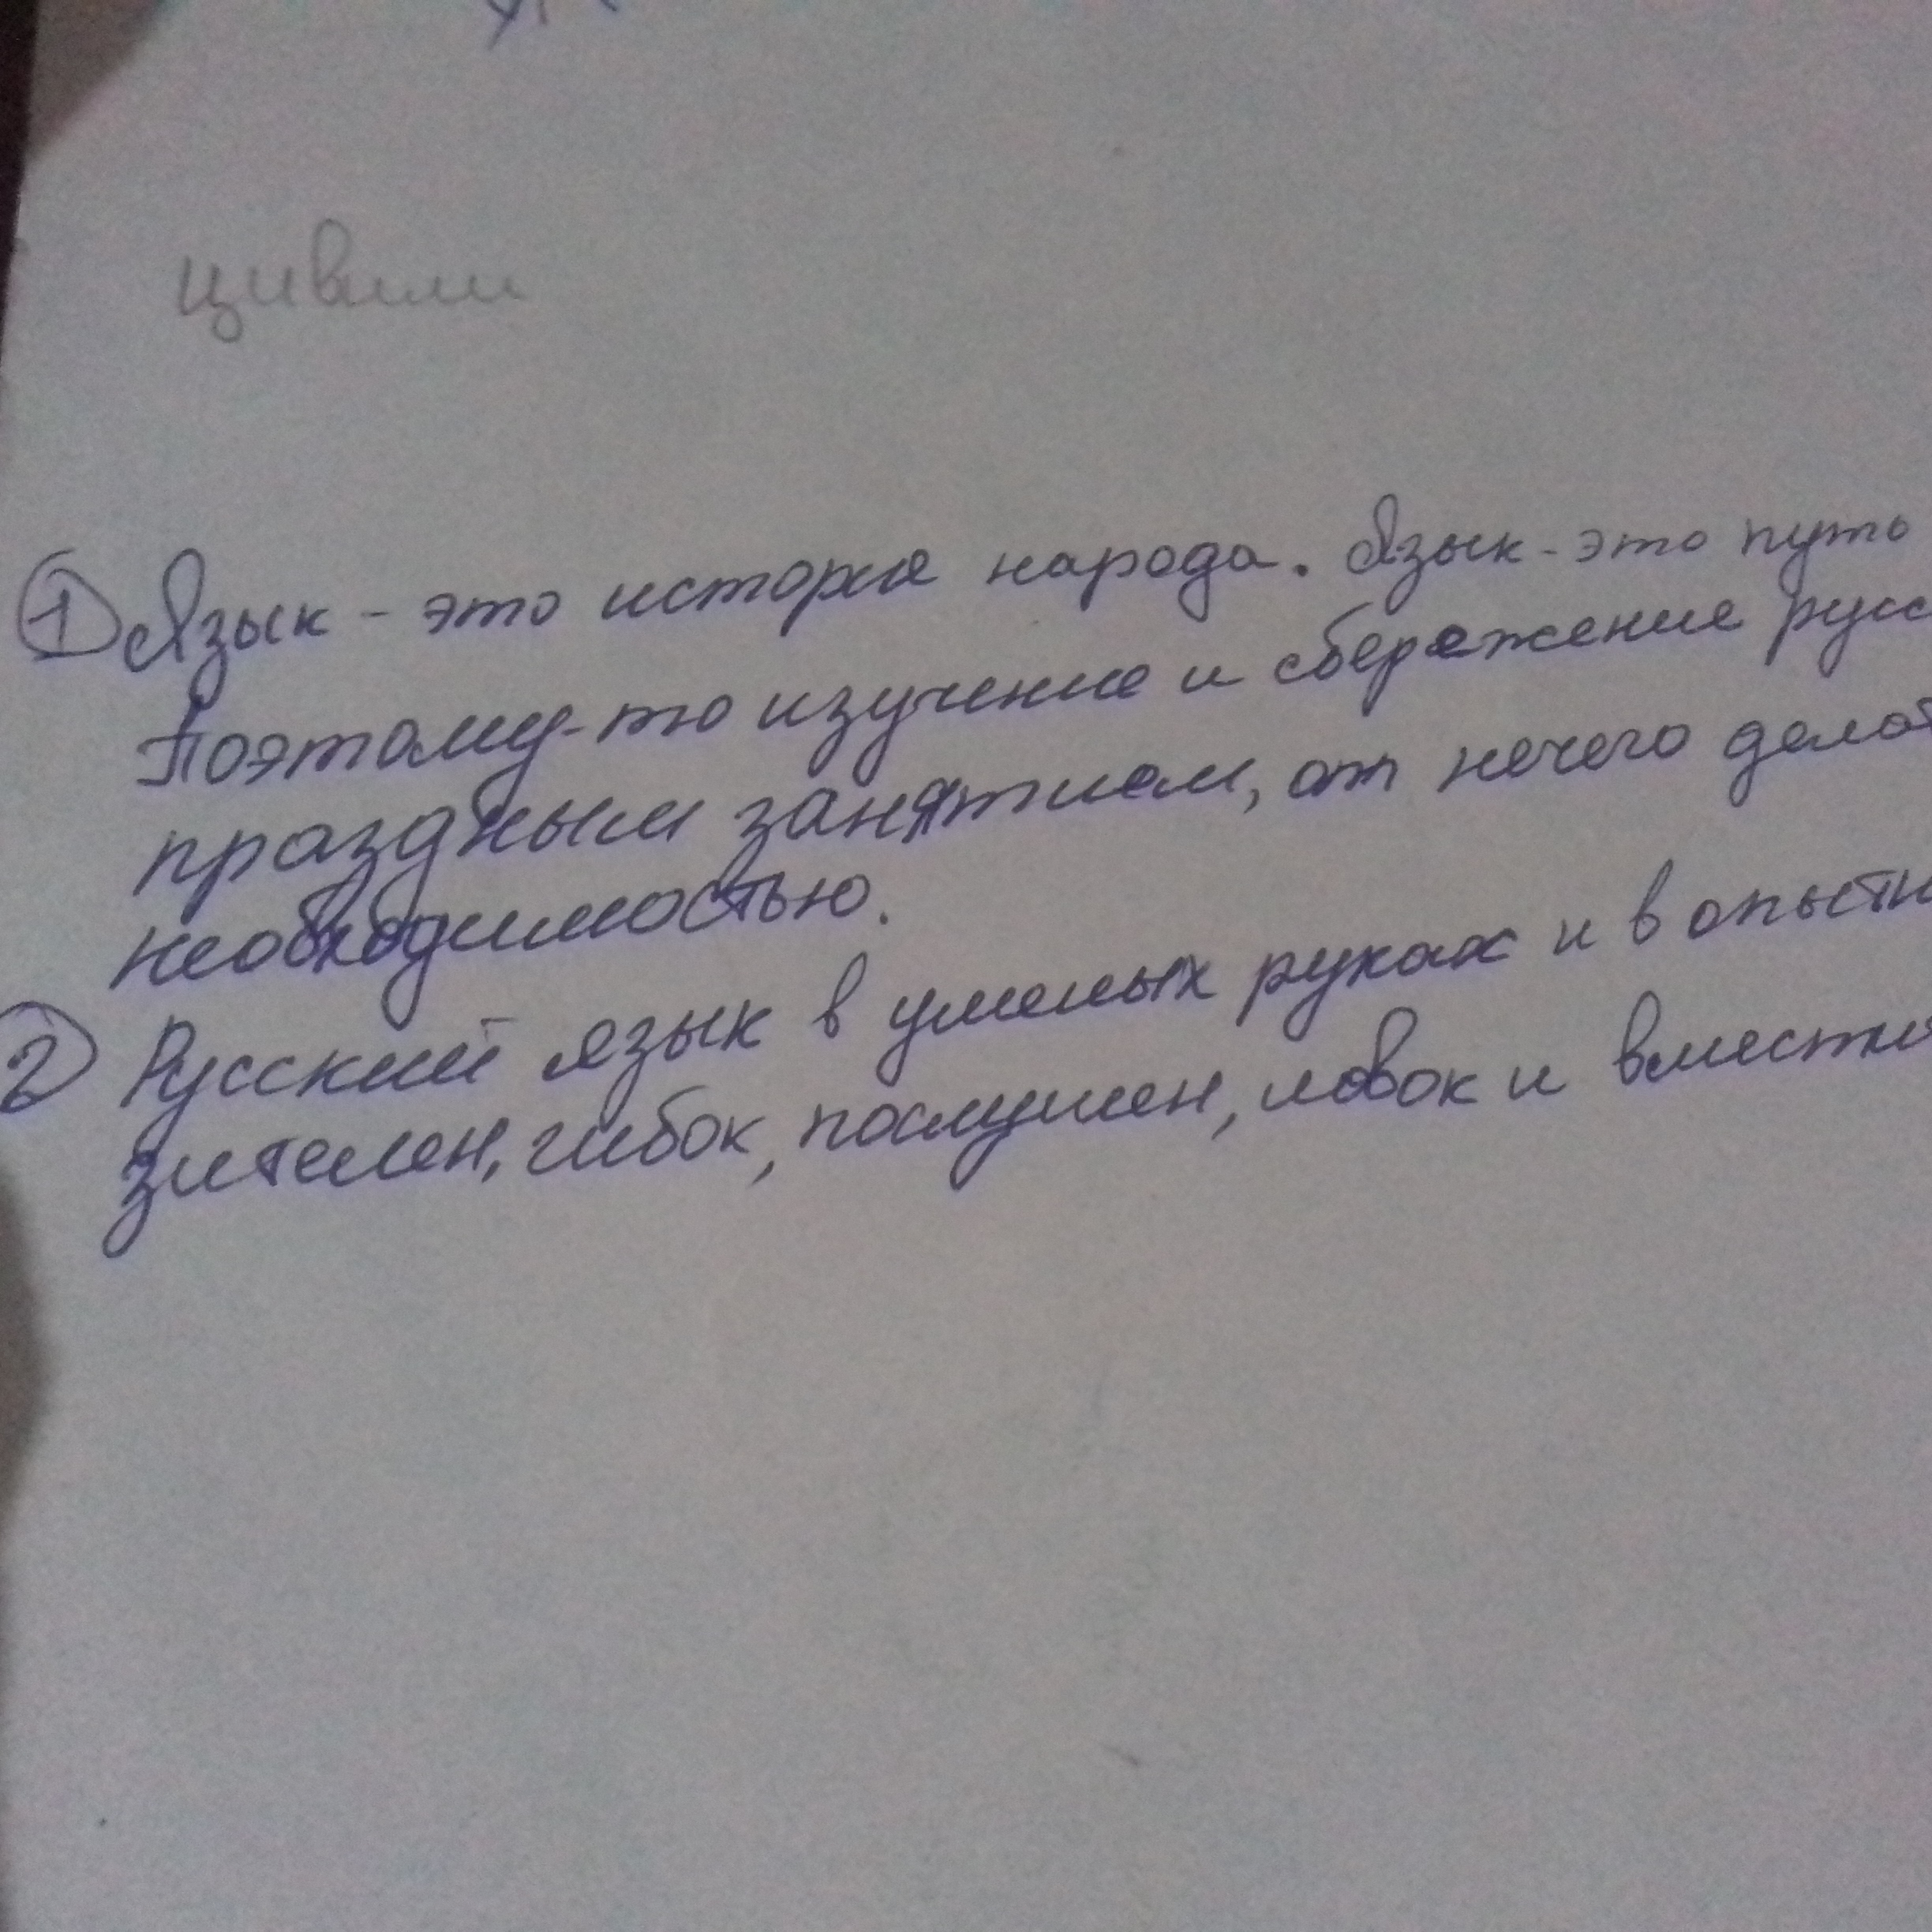 цивили
1 Язык - это история народа. Язык - это путь
Поэтому-то изучение и сбережение русс
праздным занятием, от нечего делат
необходимостью.
2 Русский язык в умелых руках и в опытн
зителен, гибок, послушен, ловок и вмести